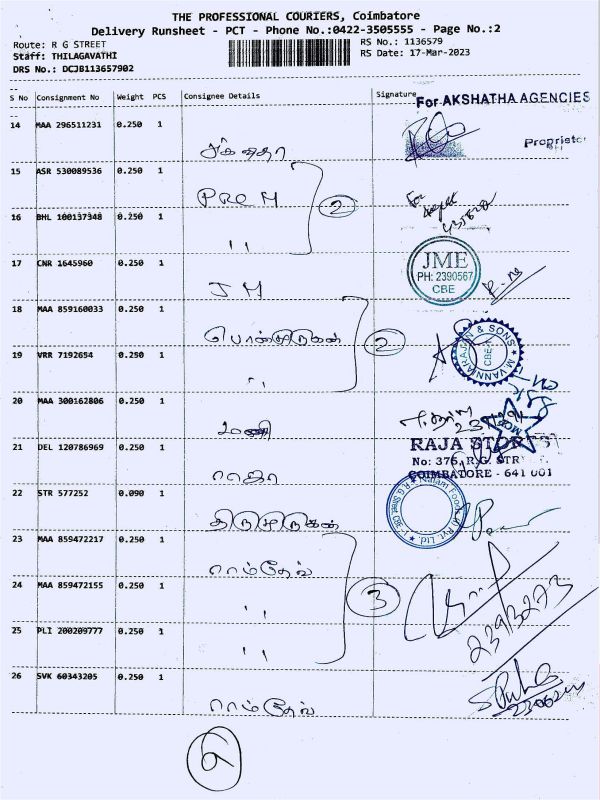 THE PROFESSIONAL COURIERS, Coimbatore
Delivery Runsheet - PCT - Phone No.:0422-3505555 - Page No.:2
Route: R G STREET
RS No.: 1136579
Staff: THILAGAVATHI
RS Date: 17-Mar-2023
DRS No.: DCJB113657902
S No Consignment No Weight PCS Consignee Details Signature
For AKSHATHA AGENCIES
14 MAA 296511231 0.250 1
Proprietor
15 ASR 530089536 0.250 1
PRC M
2
16 BHL 100137348 0.250 1
,,
JME
PH: 2390567
CBE
17 CNR 1645960 0.250 1
J M
18 MAA 859160033 0.250 1
பொன்முருகன்
2
19 VRR 7192654 0.250 1
,,
20 MAA 300162806 0.250 1
மணி
RAJA STORES
No: 376, R.G. STR
COIMBATORE - 641 001
21 DEL 120786969 0.250 1
ராஜா
22 STR 577252 0.090 1
திருமுருகன்
23 MAA 859472217 0.250 1
ராம்தேவ்
24 MAA 859472155 0.250 1
,,
3
25 PLI 200209777 0.250 1
,,
26 SVK 60343205 0.250 1
ராம்தேவ்